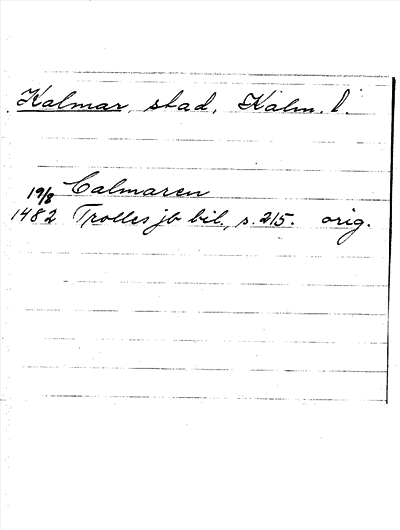 Kalmar, stad, Kalm. l.
19/8 Calmaren
1482 Trolles jb bil., s. 215. orig.